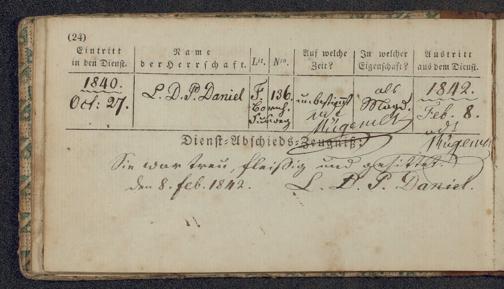 (24)
Eintritt in den Dienst. Name der Herrschaft. Lit. Nro. Auf welche Zeit? In welcher Eigenschaft? Austritt aus dem Dienst.
1840. L. D. P. Daniel F. 136. unbestimmt als Magd. 1842.
Oct: 27. Feb. 8.
Dienst-Abschieds-Zeugniß.
Sie war treu, fleißig und gesittet.
den 8. Feb. 1842. L. D. P. Daniel.